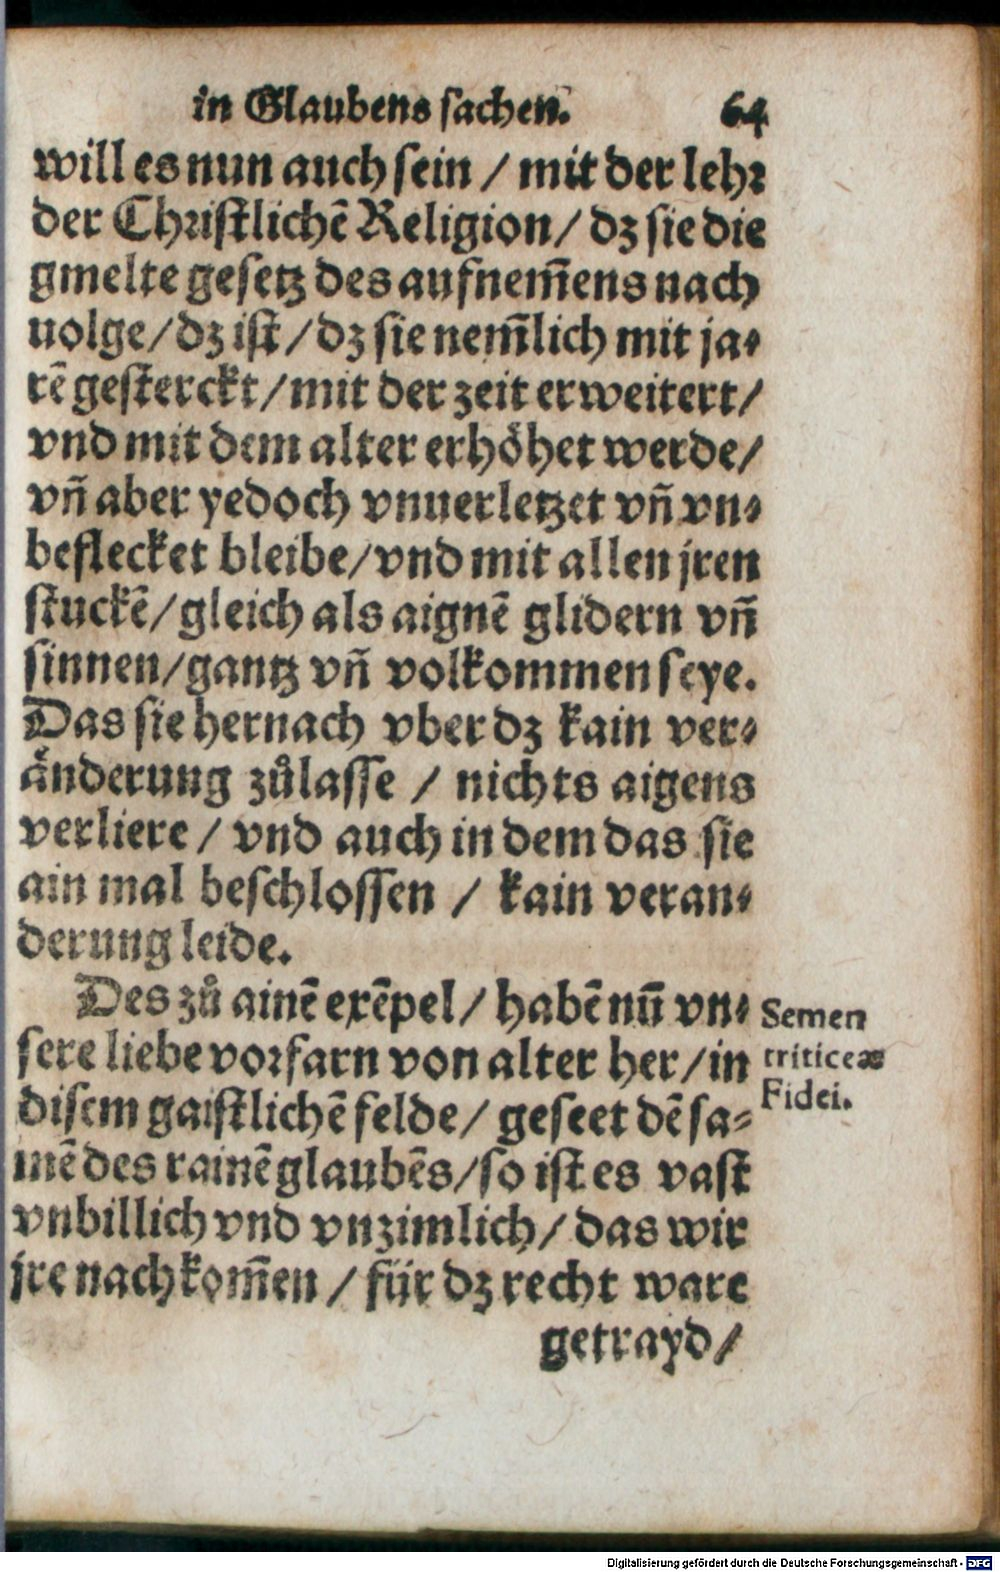 in Glaubens sachen. 64
will es nun auch sein / mit der lehr
der Christlichē Religion / dz sie die
gmelte gesetz des aufnem̄ens nach
uolge / dz ist / dz sie nem̄lich mit ja-
rē gesterckt / mit der zeit erweitert /
vnd mit dem alter erhöhet werde /
vn̄ aber yedoch vnuerletzet vn̄ vn-
beflecket bleibe / vnd mit allen jren
stuckē / gleich als aignē glidern vn̄
sinnen / gantz vn̄ volkommen seye.
Das sie hernach vber dz kain ver-
änderung zůlasse / nichts aigens
verliere / vnd auch in dem das sie
ain mal beschlossen / kain veran-
derung leide.
Des zů ainē exēpel / habē nū vn-
sere liebe vorfarn von alter her / in
disem gaistlichē felde / geseet dē sa-
mē des rainē glaubēs / so ist es vast
vnbillich vnd vnzimlich / das wir
jre nachkom̄en / für dz recht ware
getrayd /
Semen
triticeæ
Fidei.
Digitalisierung gefördert durch die Deutsche Forschungsgemeinschaft - DFG